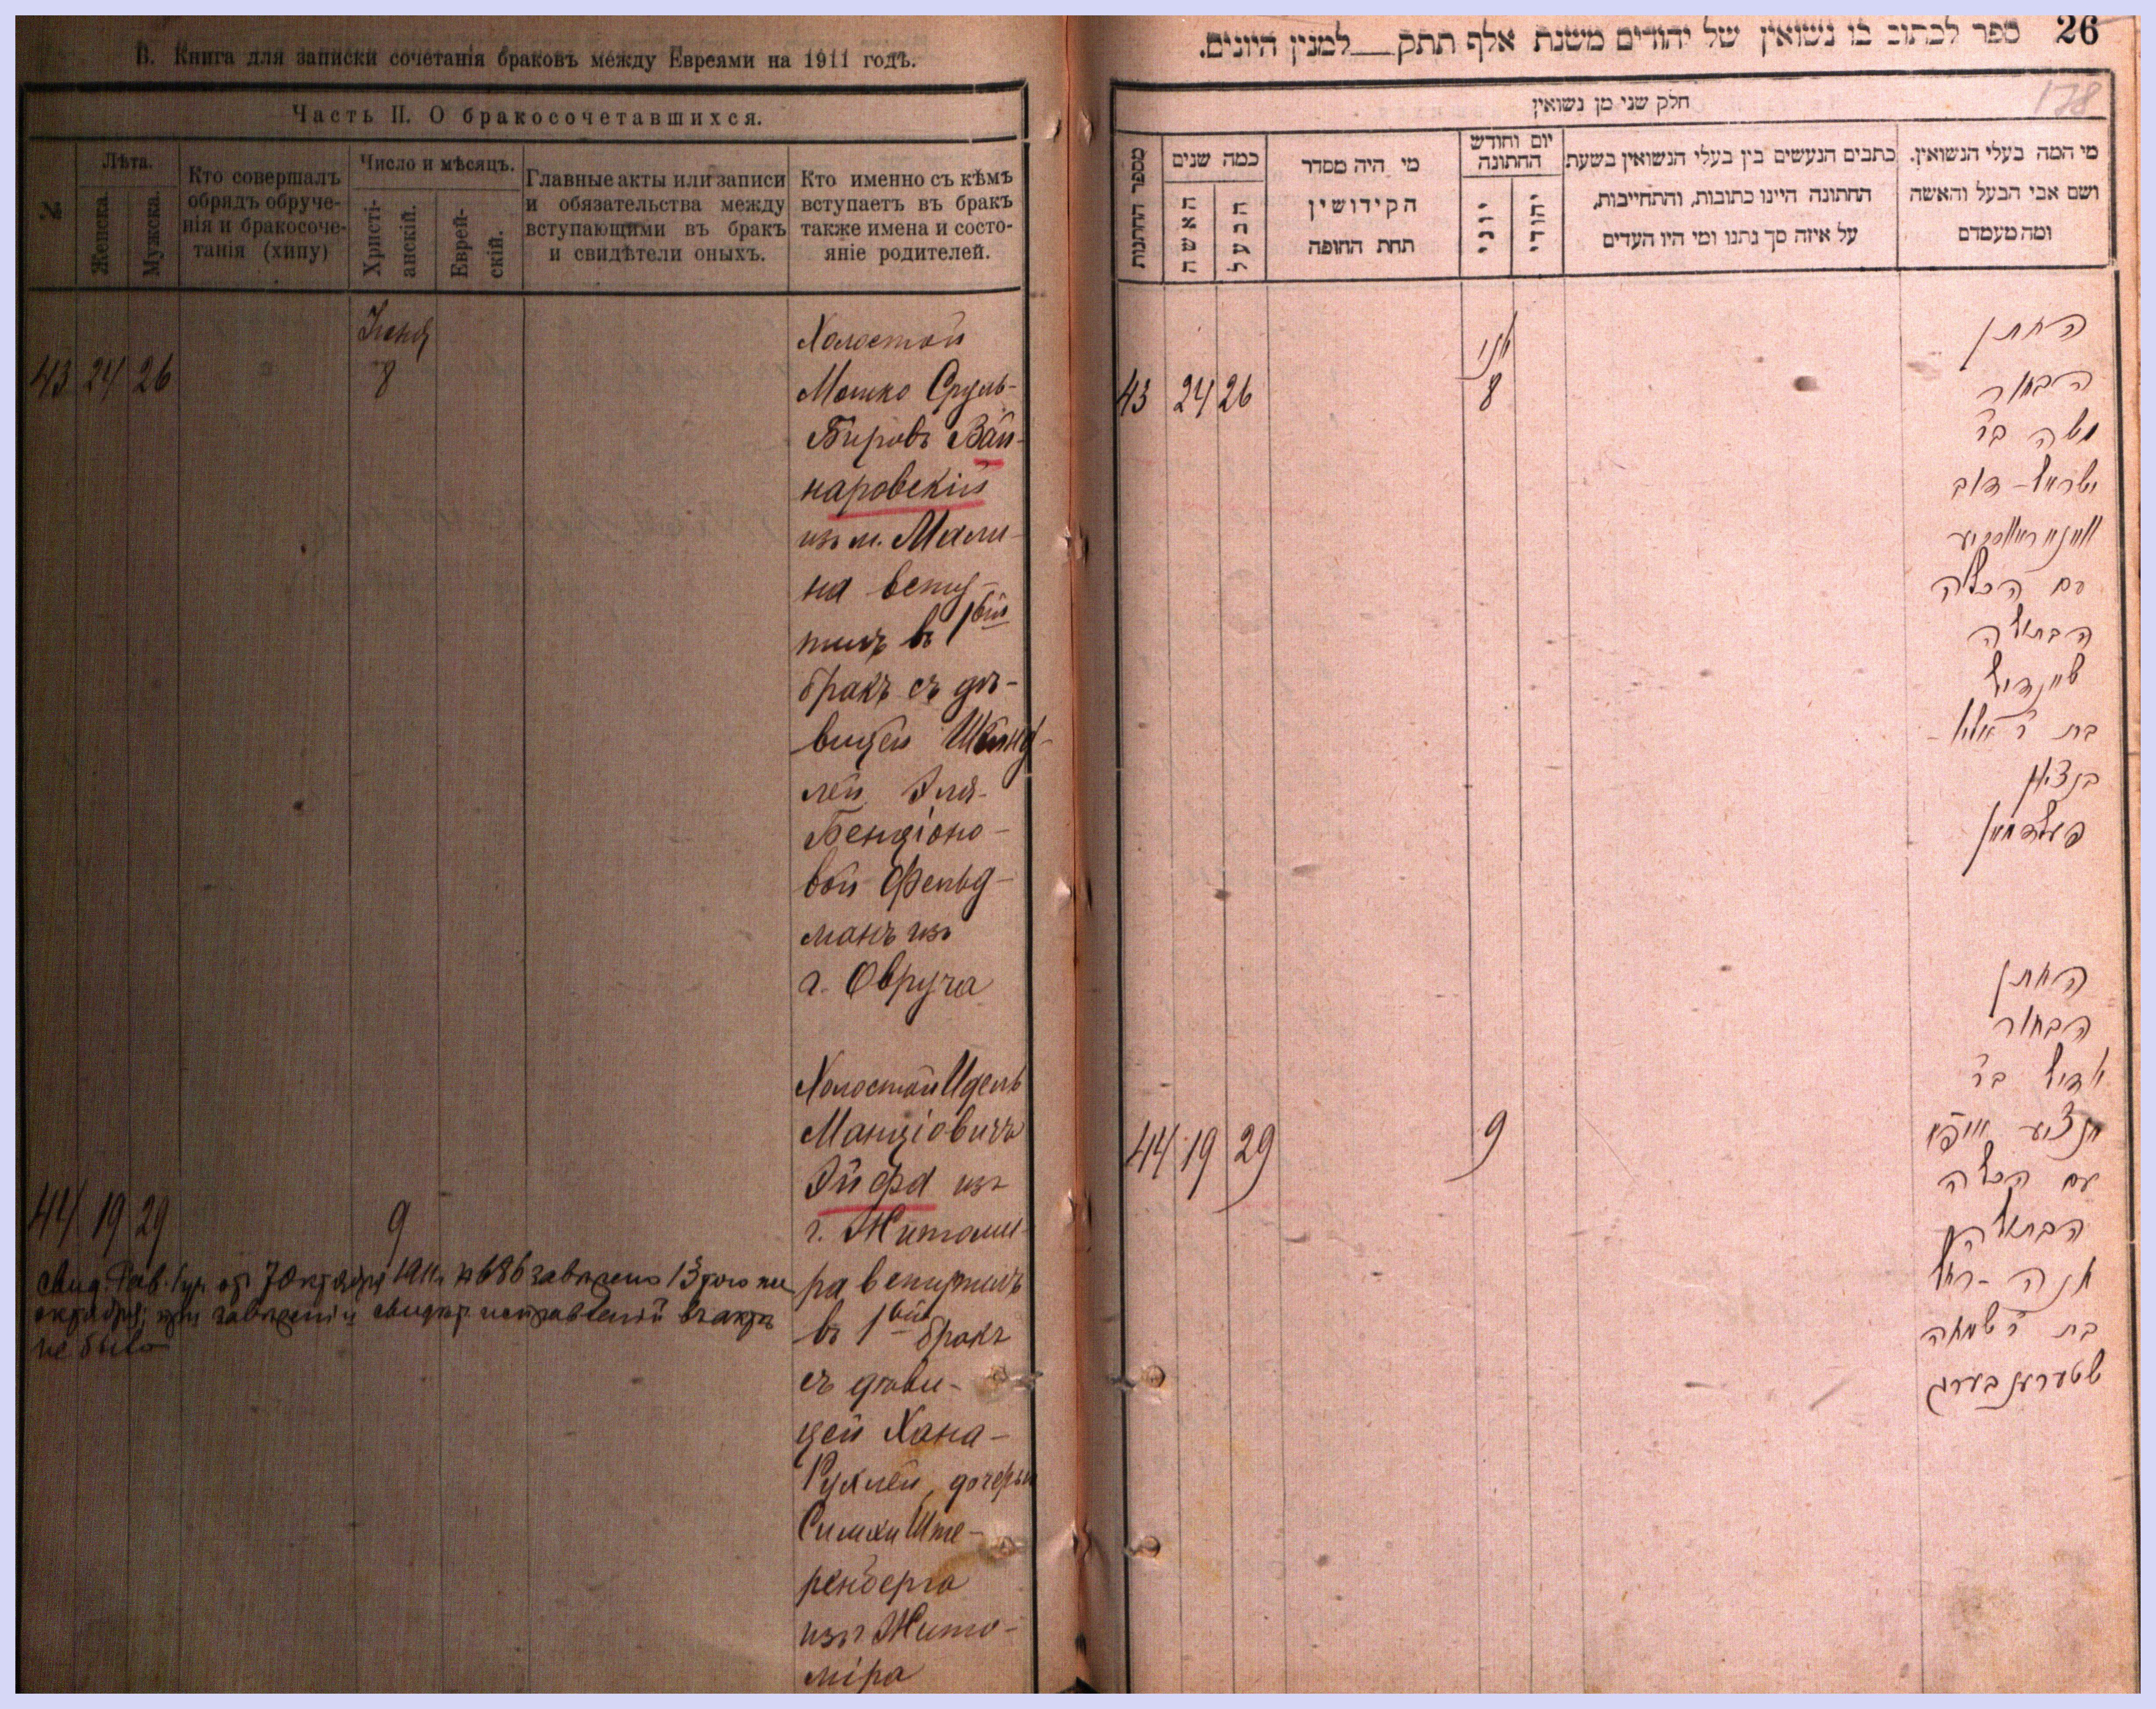 В. Книга для записки сочетанія браковъ между Евреями на 1911 годъ.
Часть II. О бракосочетавшихся.
№
Лѣта.
Женска.
Мужска.
Кто совершалъ
обрядъ обруче-
нія и бракосоче-
танія (хипу)
Число и мѣсяцъ.
Христі-
анскій.
Еврей-
скій.
Главные акты или записи
и обязательства между
вступающими въ бракъ
и свидѣтели оныхъ.
Кто именно съ кѣмъ
вступаетъ въ бракъ
также имена и состо-
яніе родителей.
43 24 26
Іюня
8
Холостой
Мошко Сруль-
Беровъ Вай-
наровскій
изъ м. Мали-
на всту-
пилъ въ 1вый
бракъ съ дѣ-
вицей Шейнд-
лей Эля-
Бенціоно-
вой Фельд-
манъ изъ
г. Овруча
44 19 29
9
Холостой Идель
Манціовичъ
Эйфа изъ
г. Житоми-
ра вступилъ
въ 1вый бракъ
съ дѣви-
цей Хана-
Рухлей, дочерью
Симхи Ште-
ренберга
изъ Жито-
міра
октября; при
не было
26 ספר לכתוב בו נשואין של יהודים משנת אלף תתק למנין היונים.
178
חלק שני מן נשואין
מספר החתונות
כמה שנים
האשה
הבעל
מי היה מסדר
הקידושין
תחת החופה
יום וחודש
החתונה
יוני
יהודי
כתבים הנעשים בין בעלי הנשואין בשעת
החתונה היינו כתובות, והתחייבות,
על איזה סך נתנו ומי היו העדים
מי המה בעלי הנשואין.
ושם אבי הבעל והאשה
ומה מעמדם
43 24 26
יוני
8
החתן
הבחור
משה בר
ישראל-דוב
וויינאראווסקיי
עם הכלה
הבתולה
שיינדיל
בת ר' אלי-
בנציון
פעלדמאן
44 19 29
9
החתן
הבחור
יודיל בר
עם הכלה
הבתולה
חנה-רחל
בת ר' שמחה
שטערענבערג